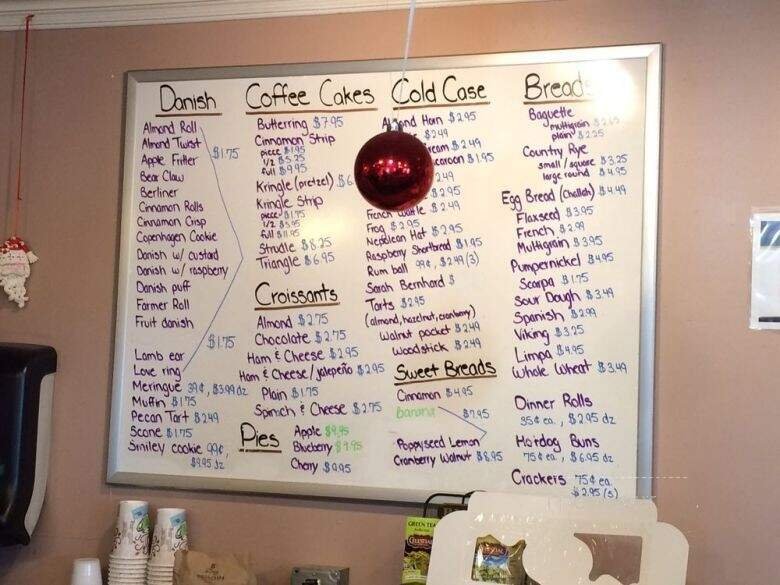 Danish
Almond Roll
Almond Twist
Apple Fritter
Bear Claw
Berliner
Cinnamon Rolls
Cinnamon Crisp
Copenhagen Cookie
Danish w/ custard
Danish w/ raspberry
Danish puff
Farmer Roll
Fruit danish
$1.75
Lamb ear
Love ring
$1.75
Meringue 39¢, $3.99 dz
Muffin $1.75
Pecan Tart $2.49
Scone $1.75
Smiley cookie 99¢,
$9.95 dz
Coffee Cakes
Butterring $7.95
Cinnamon Strip
piece $1.95
1/2 $5.25
full $9.95
Kringle (pretzel) $6
Kringle Strip
piece $1.75
1/2 $5.95
full $11.95
Strudle $8.25
Triangle $6.95
Croissants
Almond $2.75
Chocolate $2.75
Ham & Cheese $2.95
Ham & Cheese/jalepeño $2.95
Plain $1.75
Spinach & Cheese $2.75
Pies
Apple $9.95
Blueberry $9.95
Cherry $9.95
Cold Case
Almond Horn $2.95
$2.49
ream $2.49
caroon $1.95
2.49
$2.95
French Waffle $2.49
Frog $2.95
Nepolean Hat $2.95
Raspberry Shortbread $1.95
Rum ball 99¢, $2.49 (3)
Sarah Bernhard $
Tarts $2.95
(almond, hazelnut, cranberry)
Walnut pocket $2.49
Woodstick $2.49
Sweet Breads
Cinnamon $4.95
banana
$7.95
Poppyseed Lemon
Cranberry Walnut $8.95
Breads
Baguette
multigrain $2.65
plain $2.25
Country Rye
small/square $3.25
large round $4.95
Egg Bread (Challah) $4.49
Flaxseed $3.95
French $2.99
Multigrain $3.95
Pumpernickel $4.95
Scarpa $1.75
Sour Dough $3.49
Spanish $2.99
Viking $3.25
Limpa $4.95
Whole Wheat $3.49
Dinner Rolls
35¢ ea., $2.95 dz
Hotdog Buns
75¢ ea., $6.95 dz
Crackers 75¢ ea
$2.95 (5)
GREEN TEA
CELESTIAL